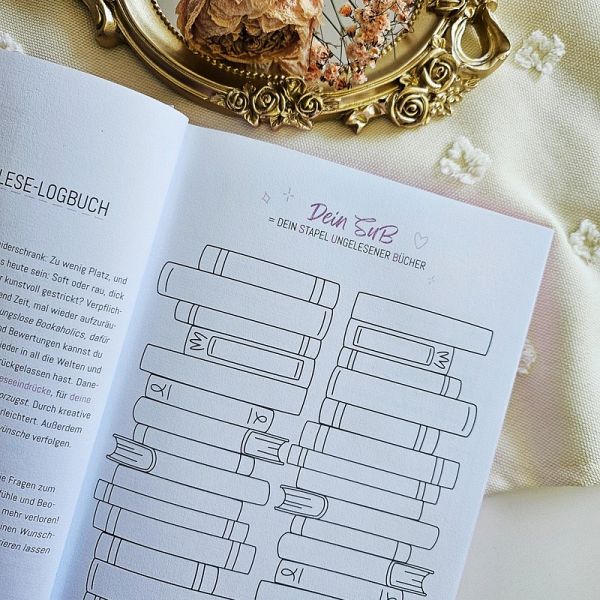 LESE-LOGBUCH
derschrank: Zu wenig Platz, und
s heute sein: Soft oder rau, dick
r kunstvoll gestrickt? Verpflich-
end Zeit, mal wieder aufzuräu-
ungslose Bookaholics, dafür
nd Bewertungen kannst du
ieder in all die Welten und
rückgelassen hast. Dane-
eseeindrücke, für deine
orzugst. Durch kreative
erleichtert. Außerdem
wünsche verfolgen.
e Fragen zum
fühle und Beo-
mehr verloren!
inen Wunsch-
rieren lassen
Dein SuB
= DEIN STAPEL UNGELESENER BÜCHER